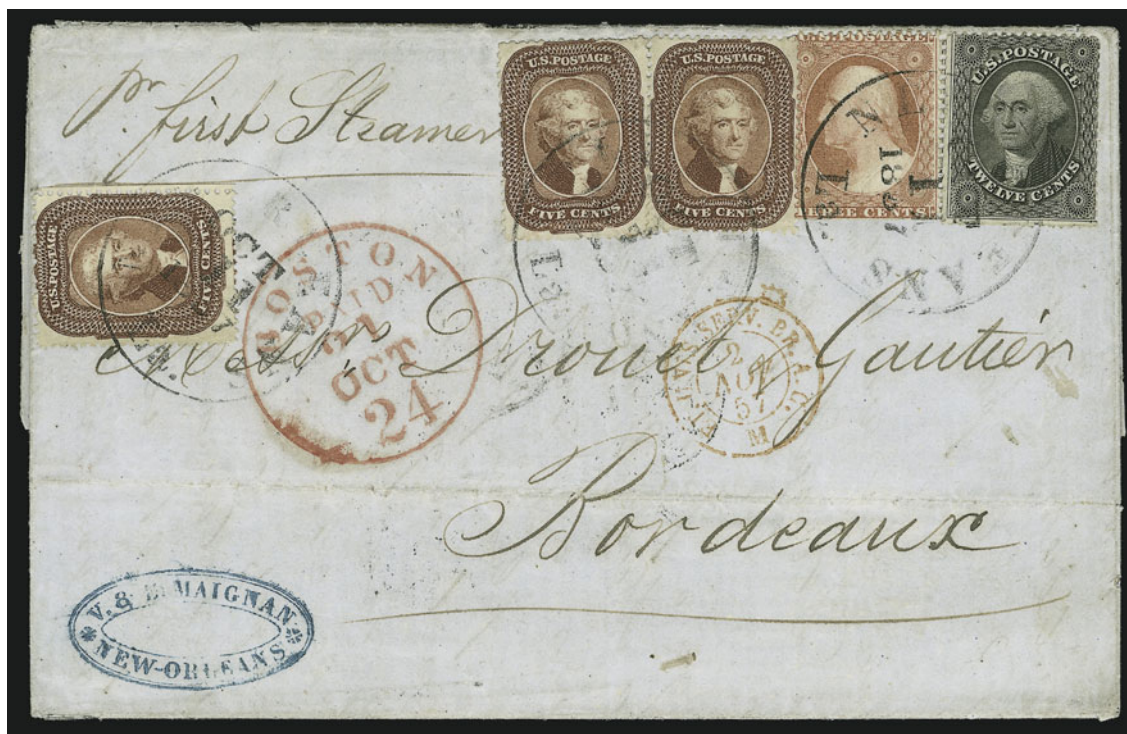 pr. first Steamer
U.S. POSTAGE
FIVE CENTS
U.S. POSTAGE
FIVE CENTS
U.S. POSTAGE
CENTS
U.S. POSTAGE
TWELVE CENTS
U.S. POSTAGE
FIVE CENTS
OCT
BOSTON
OCT
24
SERV. BR. A. C.
57
M
Drouet & Gautier
Bordeaux
V. & MAIGNAN
NEW-ORLEANS